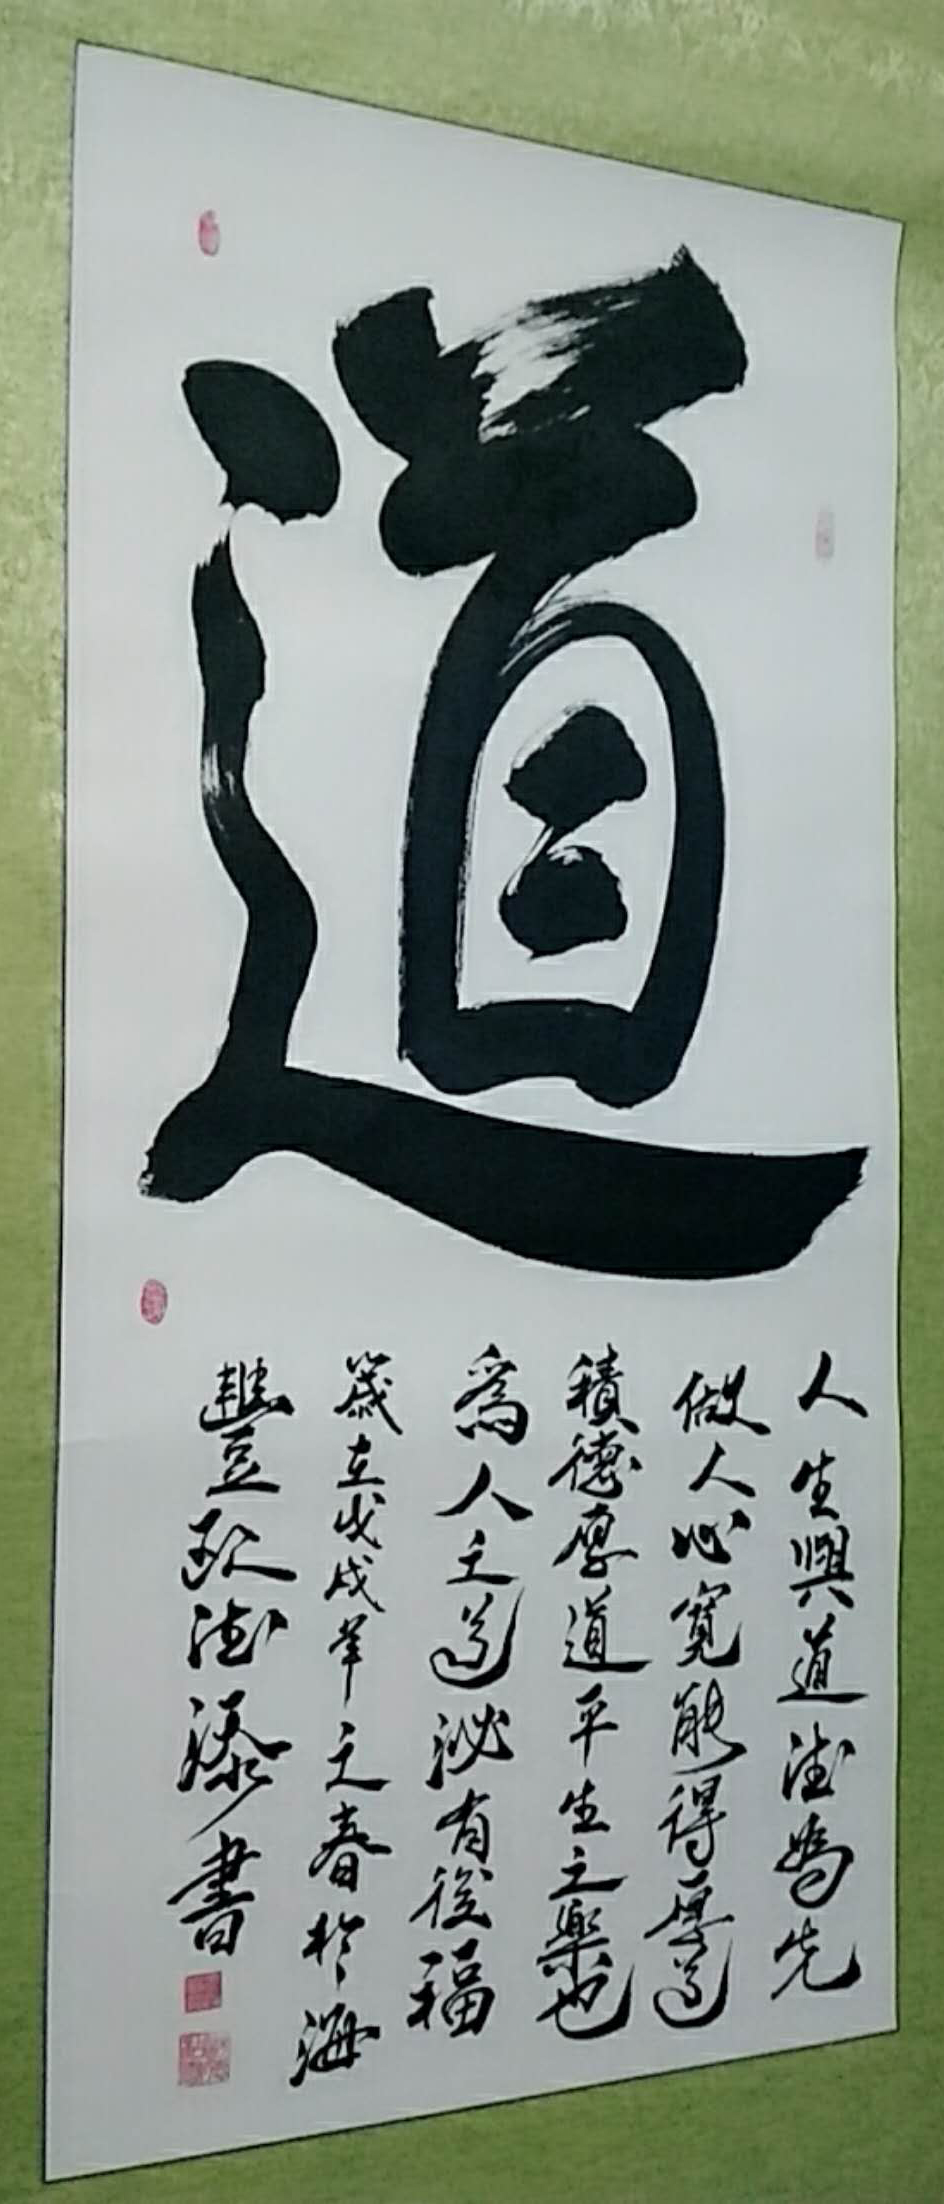 道
人生興道德為先
做人心寬能得厚道
積德厚道平生之樂也
為人之道必有後福
歲在戊戌年之春於海
豐 德添書